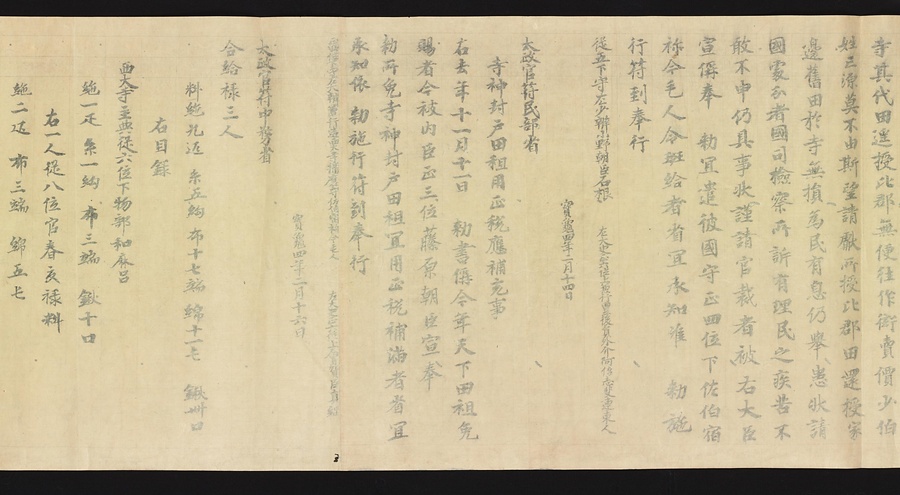 寺其代田遥授比郡無便往作街賣價少伯
姓之源莫不由斯望請厭所授比郡田還授家
邊舊田於寺無損為民有息仍舉患状請
國褁分者國司檢察所訴有理民之疾苦不
敢不申仍具事状謹請官裁者被右大臣
宣偁奉 勅宜遣彼國守正四位下佐伯宿
祢今毛人令班給者省宜承知准 勅施
行符到奉行
従五下守左少辨小野朝臣石根
寳龜四年二月十四日
太政官符民部省
寺神封戸田租用正税應補充事
右去年十一月十一日 勅書偁今年天下田租免
賜者今被内臣正三位藤原朝臣宣奉
勅所免寺神封戸田租宜用正税補滿者省宜
承知依 勅施行符到奉行
寳龜四年二月十六日
太政官符中務省
合給祿三人
料絁九疋 糸五絇 布十七端 綿十一屯 鍬卌口
右目録
西大寺主典従六位下物部和麻呂
絁一疋 糸一絇 布三端 鍬十口
右一人従八位官春夏祿料
絁二疋 布三端 綿五屯